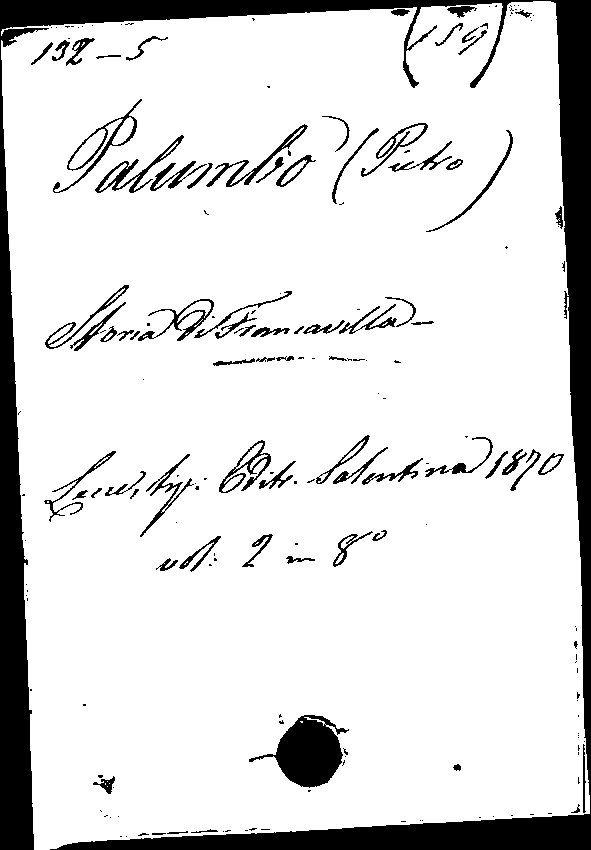 132-5 (159)
Palumbo (Pietro)
Storia di Francavilla -
Lecce, tip: Editr. Salentina 1870
vol: 2 in 8º